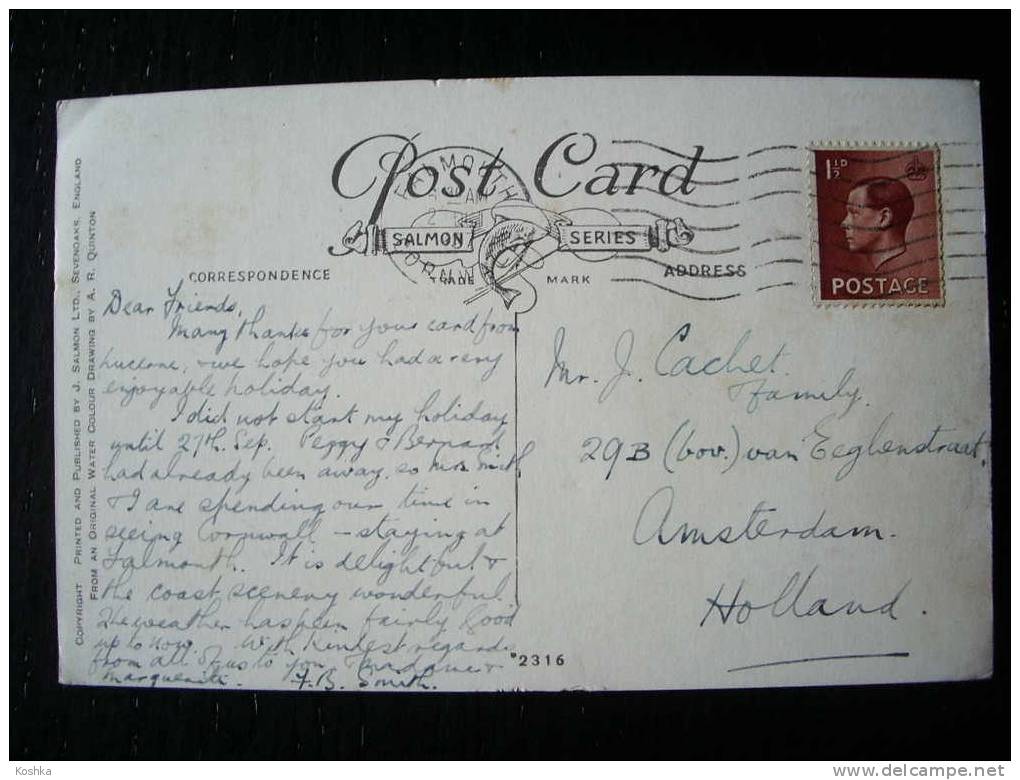 COPYRIGHT PRINTED AND PUBLISHED BY J. SALMON LTD., SEVENOAKS, ENGLAND
FROM AN ORIGINAL WATER COLOUR DRAWING BY A. R. QUINTON
Post Card
SALMON SERIES
TRADE MARK
CORRESPONDENCE
ADDRESS
FALMOUTH
AM
CORNWALL
1½D
POSTAGE
Dear Friends,
Many thanks for your card from
Lucerne, & we hope you had a very
enjoyable holiday.
I did not start my holiday
until 27th. Sep. Peggy & Bernard
had already been away, so Mrs Smith
& I are spending our time in
seeing Cornwall – staying at
Falmouth. It is delightful &
the coast scenery wonderful.
The weather has been fairly good
up to now. With kindest regards
from all of us to you, Madame &
Marguerite. F. B. Smith.
Mr. J. Cachet.
Family.
29B (bov.) van Eeghenstraat,
Amsterdam.
Holland.
*2316
Koshka
delcampe.net